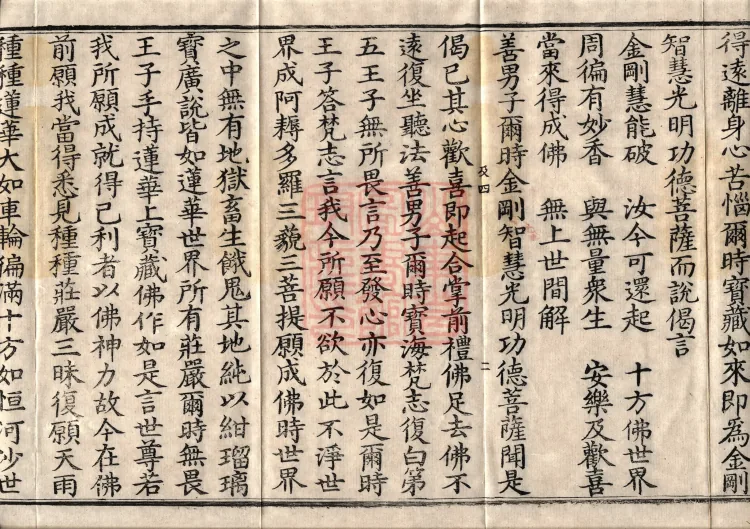 得遠離身心苦惱爾時寶藏如來即為金剛
智慧光明功德菩薩而說偈言
金剛慧能破　汝今可還起　十方佛世界
周徧有妙香　與無量衆生　安樂及歡喜
當來得成佛　無上世間解
善男子爾時金剛智慧光明功德菩薩聞是
偈已其心歡喜即起合掌前禮佛足去佛不
遠復坐聽法善男子爾時寶海梵志復白第
五王子無所畏言乃至發心亦復如是爾時
王子答梵志言我今所願不欲於此不淨世
界成阿耨多羅三藐三菩提願成佛時世界
之中無有地獄畜生餓鬼其地純以紺瑠璃
寶廣說皆如蓮華世界所有莊嚴爾時無畏
王子手持蓮華上寶藏佛作如是言世尊若
我所願成就得己利者以佛神力故今在佛
前願我當得悉見種種莊嚴三昧復願天雨
種種蓮華大如車輪徧滿十方如恒河沙世
四
二